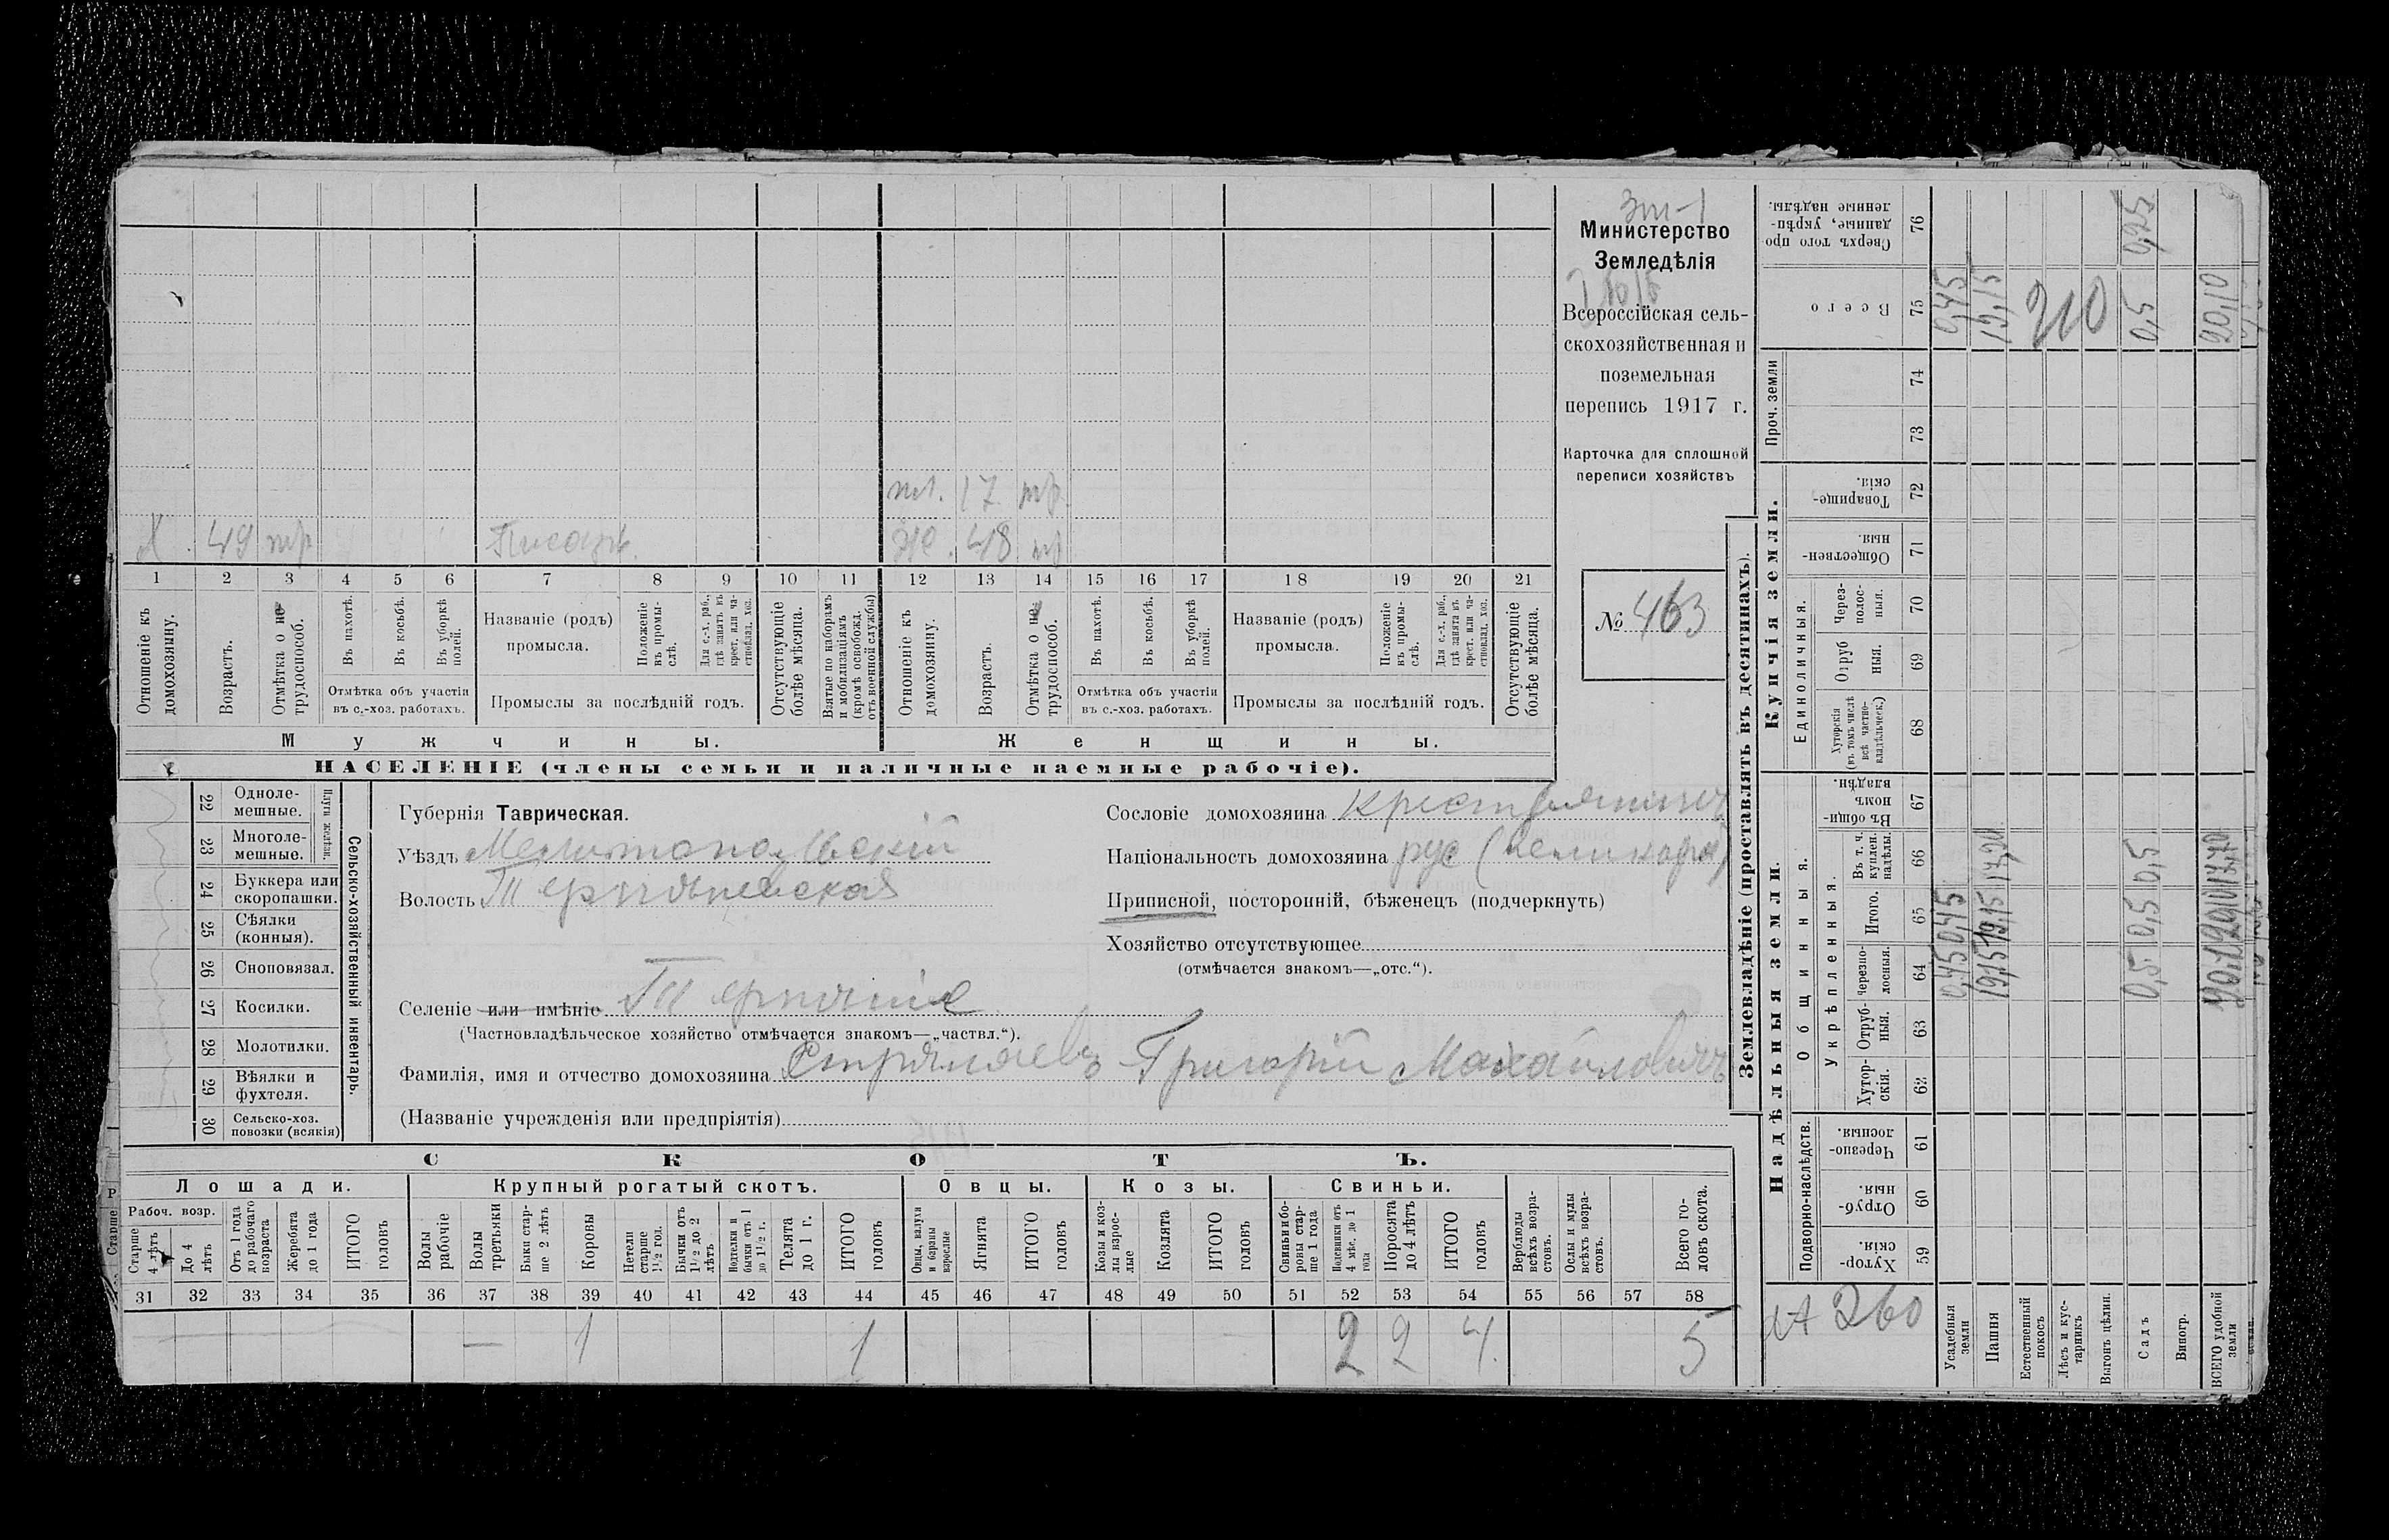 зт-1
Министерство
Земледѣлія
Всероссійская сель-
скохозяйственная и
поземельная
перепись 1917 г.
Карточка для сплошной
переписи хозяйствъ
№ 463
пл. 17 тр.
Х 49 тр Писарь. Же. 48 тр
1 2 3 4 5 6 7 8 9 10 11 12 13 14 15 16 17 18 19 20 21
Отношеніе къ домохозяину.
Возрастъ.
Отмѣтка о не- трудоспособ.
Въ пахотѣ.
Въ косьбѣ.
Въ уборкѣ полей.
Отмѣтка объ участіи въ с.-хоз. работахъ.
Названіе (родъ) промысла.
Положеніе въ промы- слѣ.
Для с.-х. раб., гдѣ занятъ въ крест. или ча- стновлад. хоз.
Промыслы за послѣдній годъ.
Отсутствующіе болѣе мѣсяца.
Взятые по наборамъ и мобилизаціямъ (кромѣ освобожд. отъ военной службы)
Отношеніе къ домохозяину.
Возрастъ.
Отмѣтка о не- трудоспособ.
Въ пахотѣ.
Въ косьбѣ.
Въ уборкѣ полей.
Отмѣтка объ участіи въ с.-хоз. работахъ.
Названіе (родъ) промысла.
Положеніе въ промы- слѣ.
Для с.-х. раб., гдѣ занята въ крест. или ча- стновлад. хоз.
Промыслы за послѣдній годъ.
Отсутствующіе болѣе мѣсяца.
Мужчины. Женщины.
НАСЕЛЕНІЕ (члены семьи и наличные наемные рабочіе).
Сельско-хозяйственный инвентарь.
Плуги желѣзн.
22 Одноле- мешные.
23 Многоле- мешные.
24 Буккера или скоропашки.
25 Сѣялки (конныя).
26 Сноповязал.
27 Косилки.
28 Молотилки.
29 Вѣялки и фухтеля.
30 Сельско-хоз. повозки (всякія)
Губернія Таврическая.
Уѣздъ Мелитопольскій
Волость Терпѣньевская
Селеніе или имѣніе Терпѣніе
(Частновладѣльческое хозяйство отмѣчается знакомъ—„частвл.“).
Фамилія, имя и отчество домохозяина Стряпаевъ Григорій Михайловичъ
(Названіе учрежденія или предпріятія)
Сословіе домохозяина Крестьянинъ
Національность домохозяина рус (великорос)
Приписной, посторонній, бѣженецъ (подчеркнуть)
Хозяйство отсутствующее
(отмѣчается знакомъ—„отс.“).
СКОТЪ.
Лошади. Крупный рогатый скотъ. Овцы. Козы. Свиньи.
Рабоч. возр.
Старше 4 лѣтъ
До 4 лѣтъ
Отъ 1 года до рабочаго возраста
Жеребята до 1 года
ИТОГО головъ
Волы рабочіе
Волы третьяки
Быки стар- ше 2 лѣтъ
Коровы
Нетели старше 1½ год.
Бычки отъ 1½ до 2 лѣтъ
Подтелки и бычки отъ 1 до 1½ г.
Телята до 1 г.
ИТОГО головъ
Овцы, валухи и бараны взрослые
Ягнята
ИТОГО головъ
Козы и коз- лы взрос- лые
Козлята
ИТОГО головъ
Свиньи и бо- ровы стар- ше 1 года
Подсвинки отъ 4 мѣс. до 1 года
Поросята до 4 лѣтъ
ИТОГО головъ
Верблюды всѣхъ возра- стовъ.
Ослы и мулы всѣхъ возра- стовъ.
Всего го- ловъ скота.
31 32 33 34 35 36 37 38 39 40 41 42 43 44 45 46 47 48 49 50 51 52 53 54 55 56 57 58
— 1 1 2 2 4 5
Землевладѣніе (проставлять въ десятинахъ).
Надѣльныя земли.
Купчія земли.
Проч. земли
Подворно-наслѣдств.
Общинныя.
Укрѣпленныя.
Единоличныя.
Хутор- скія. 59
Отруб- ныя. 60
Черезпо- лосныя. 61
Хутор- скія. 62
Отруб- ныя. 63
Черезпо- лосныя. 64
Итого. 65
Въ т. ч. куплен. надѣлы. 66
Въ общи- номъ владѣн. 67
Хуторскія (въ томъ числѣ всѣ частно- владѣльческ.) 68
Отруб ныя. 69
Через- полос- ныя. 70
Обществен- ныя. 71
Товарище- скія. 72
73
74
Всего 75
Сверхъ того про- данные, укрѣп- ленные надѣлы. 76
260
Усадебныя земли 0,45 0,45 0,45
Пашня 19,15 19,15 19,15
Естественный покосъ
Лѣсъ и кус- тарникъ
Выгонъ цѣлин.
210
Садъ 0,5 0,5 0,5 0,5 0,25
Виногр.
ВСЕГО удобной земли 20,10